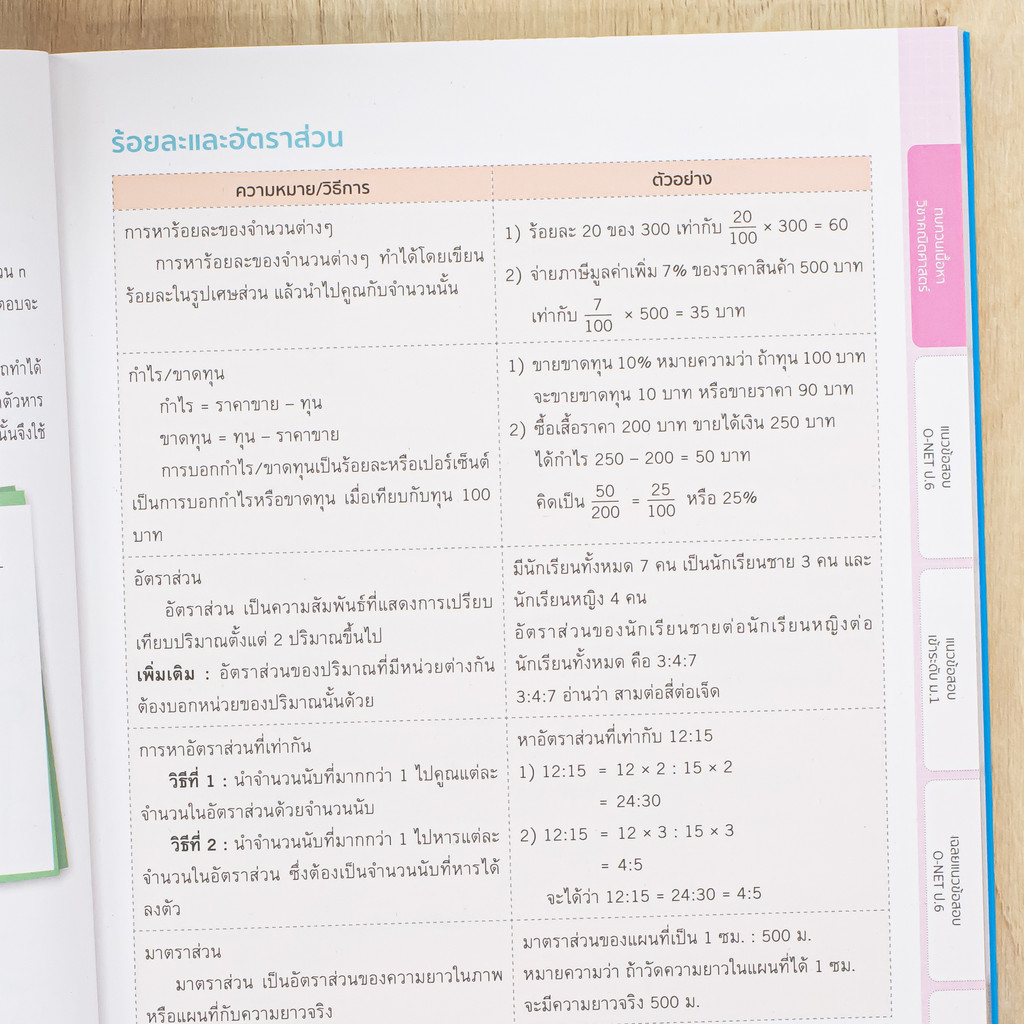 ร้อยละและอัตราส่วน
ความหมาย/วิธีการ
ตัวอย่าง
การหาร้อยละของจำนวนต่างๆ
การหาร้อยละของจำนวนต่างๆ ทำได้โดยเขียน
ร้อยละในรูปเศษส่วน แล้วนำไปคูณกับจำนวนนั้น
1) ร้อยละ 20 ของ 300 เท่ากับ 20/100 × 300 = 60
2) จ่ายภาษีมูลค่าเพิ่ม 7% ของราคาสินค้า 500 บาท
เท่ากับ 7/100 × 500 = 35 บาท
กำไร/ขาดทุน
กำไร = ราคาขาย – ทุน
ขาดทุน = ทุน – ราคาขาย
การบอกกำไร/ขาดทุนเป็นร้อยละหรือเปอร์เซ็นต์
เป็นการบอกกำไรหรือขาดทุน เมื่อเทียบกับทุน 100
บาท
1) ขายขาดทุน 10% หมายความว่า ถ้าทุน 100 บาท
จะขายขาดทุน 10 บาท หรือขายราคา 90 บาท
2) ซื้อเสื้อราคา 200 บาท ขายได้เงิน 250 บาท
ได้กำไร 250 – 200 = 50 บาท
คิดเป็น 50/200 = 25/100 หรือ 25%
อัตราส่วน
อัตราส่วน เป็นความสัมพันธ์ที่แสดงการเปรียบ
เทียบปริมาณตั้งแต่ 2 ปริมาณขึ้นไป
เพิ่มเติม : อัตราส่วนของปริมาณที่มีหน่วยต่างกัน
ต้องบอกหน่วยของปริมาณนั้นด้วย
มีนักเรียนทั้งหมด 7 คน เป็นนักเรียนชาย 3 คน และ
นักเรียนหญิง 4 คน
อัตราส่วนของนักเรียนชายต่อนักเรียนหญิงต่อ
นักเรียนทั้งหมด คือ 3:4:7
3:4:7 อ่านว่า สามต่อสี่ต่อเจ็ด
การหาอัตราส่วนที่เท่ากัน
วิธีที่ 1 : นำจำนวนนับที่มากกว่า 1 ไปคูณแต่ละ
จำนวนในอัตราส่วนด้วยจำนวนนับ
วิธีที่ 2 : นำจำนวนนับที่มากกว่า 1 ไปหารแต่ละ
จำนวนในอัตราส่วน ซึ่งต้องเป็นจำนวนนับที่หารได้
ลงตัว
หาอัตราส่วนที่เท่ากับ 12:15
1) 12:15 = 12 × 2 : 15 × 2
= 24:30
2) 12:15 = 12 × 3 : 15 × 3
= 4:5
จะได้ว่า 12:15 = 24:30 = 4:5
มาตราส่วน
มาตราส่วน เป็นอัตราส่วนของความยาวในภาพ
หรือแผนที่กับความยาวจริง
มาตราส่วนของแผนที่เป็น 1 ซม. : 500 ม.
หมายความว่า ถ้าวัดความยาวในแผนที่ได้ 1 ซม.
จะมีความยาวจริง 500 ม.
ทบทวนเนื้อหา
วิชาคณิตศาสตร์
แนวข้อสอบ
O-NET ป.6
แนวข้อสอบ
เข้าระดับ ม.1
เฉลยแนวข้อสอบ
O-NET ป.6